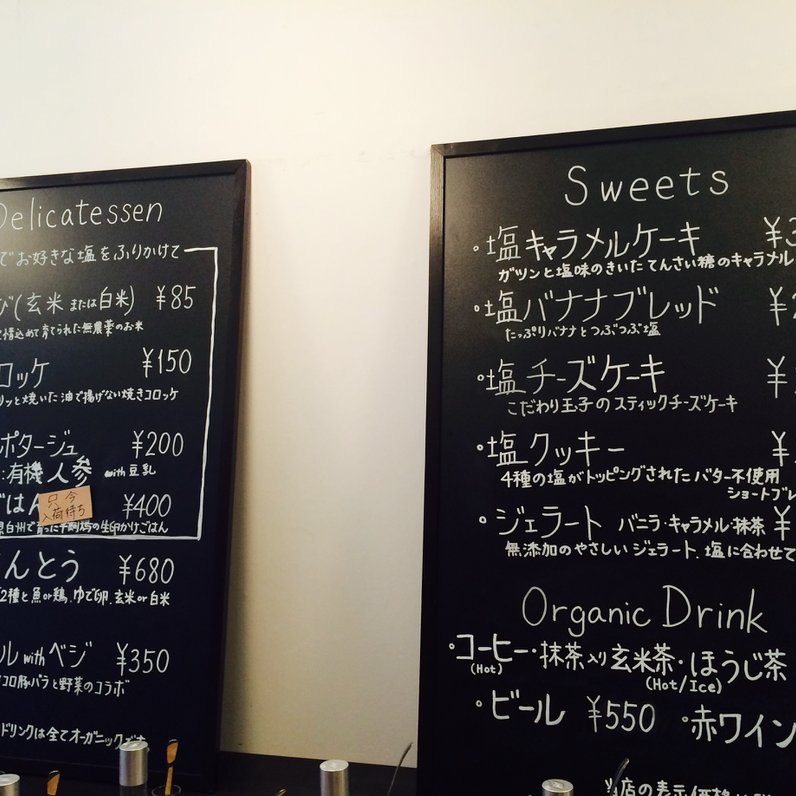 Delicatessen
でお好きな塩をふりかけて
び(玄米または白米) ¥85
て育てられた無農薬のお米
ロッケ ¥150
リッと焼いた油で揚げない焼きコロッケ
ポタージュ ¥200
:有機人参 with豆乳
ごはん ¥400
只今
入荷待ち
白州で育った 生卵かけごはん
んとう ¥680
2種と魚or鶏.ゆで卵.玄米or白米
ル with ベジ ¥350
コロ豚バラと野菜のコラボ
ドリンクは全てオーガニックです
Sweets
・塩キャラメルケーキ ¥3
ガツンと塩味のきいたてんさい糖のキャラメル
・塩バナナブレッド ¥2
たっぷりバナナとつぶつぶ塩
・塩チーズケーキ ¥
こだわり玉子のスティックチーズケーキ
・塩クッキー ¥
4種の塩がトッピングされたバター不使用
ショートブレ
・ジェラート バニラ・キャラメル・抹茶 ¥
無添加のやさしいジェラート.塩に合わせて
Organic Drink
・コーヒー・抹茶入り玄米茶・ほうじ茶
(Hot) (Hot/Ice)
・ビール ¥550 ・赤ワイン
店の表示価格は